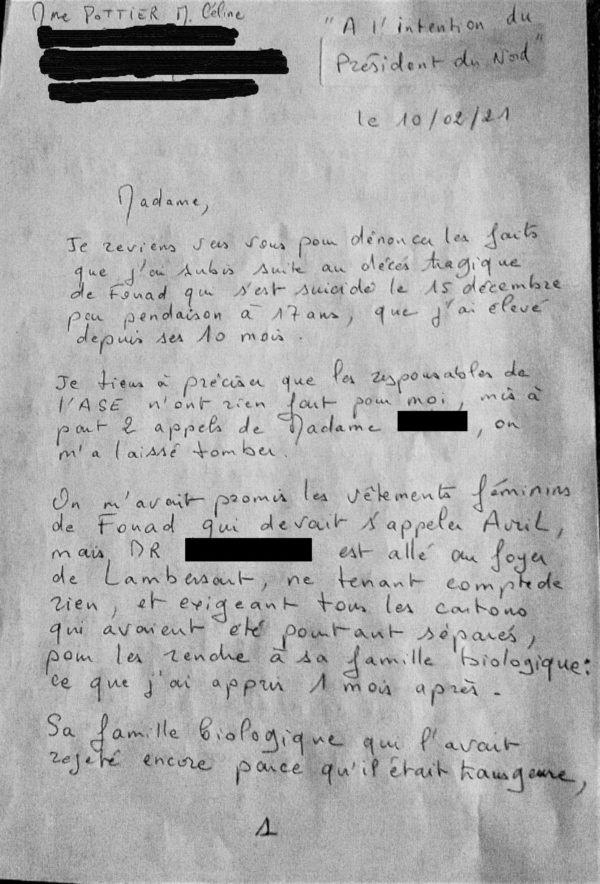 Mme POTTIER M. Céline
"A l'intention du
Président du Nord"
le 10/02/21
Madame,
Je reviens vers vous pour dénoncer les faits
que j'ai subis suite au décés tragique
de Fouad qui s'est suicidé le 15 décembre
par pendaison à 17 ans, que j'ai élevé
depuis ses 10 mois.
Je tiens à préciser que les responsables de
l'ASE n'ont rien fait pour moi, mis à
part 2 appels de Madame , on
m'a laissé tomber.
On m'avait promis les vêtements féminins
de Fouad qui devait s'appeler Avril,
mais DR est allé au foyer
de Lambersart, ne tenant compte de
rien, et exigeant tous les cartons
qui avaient été pourtant séparés,
pour les rendre à sa famille biologique:
ce que j'ai appris 1 mois après.
Sa famille biologique qui l'avait
rejeté encore parce qu'il était transgenre,
1